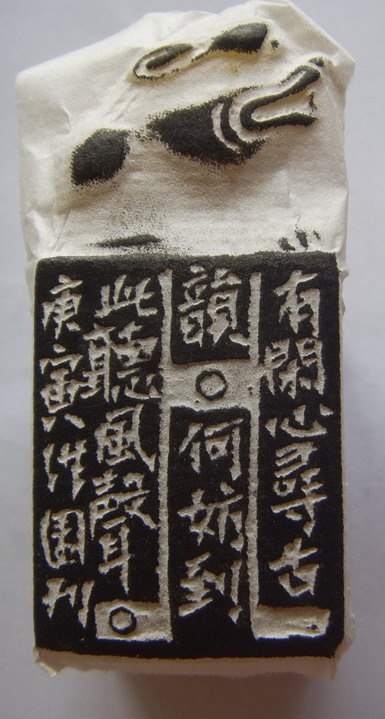 有閑心尋古
韻何妨到
此聽風聲
庚寅園刊